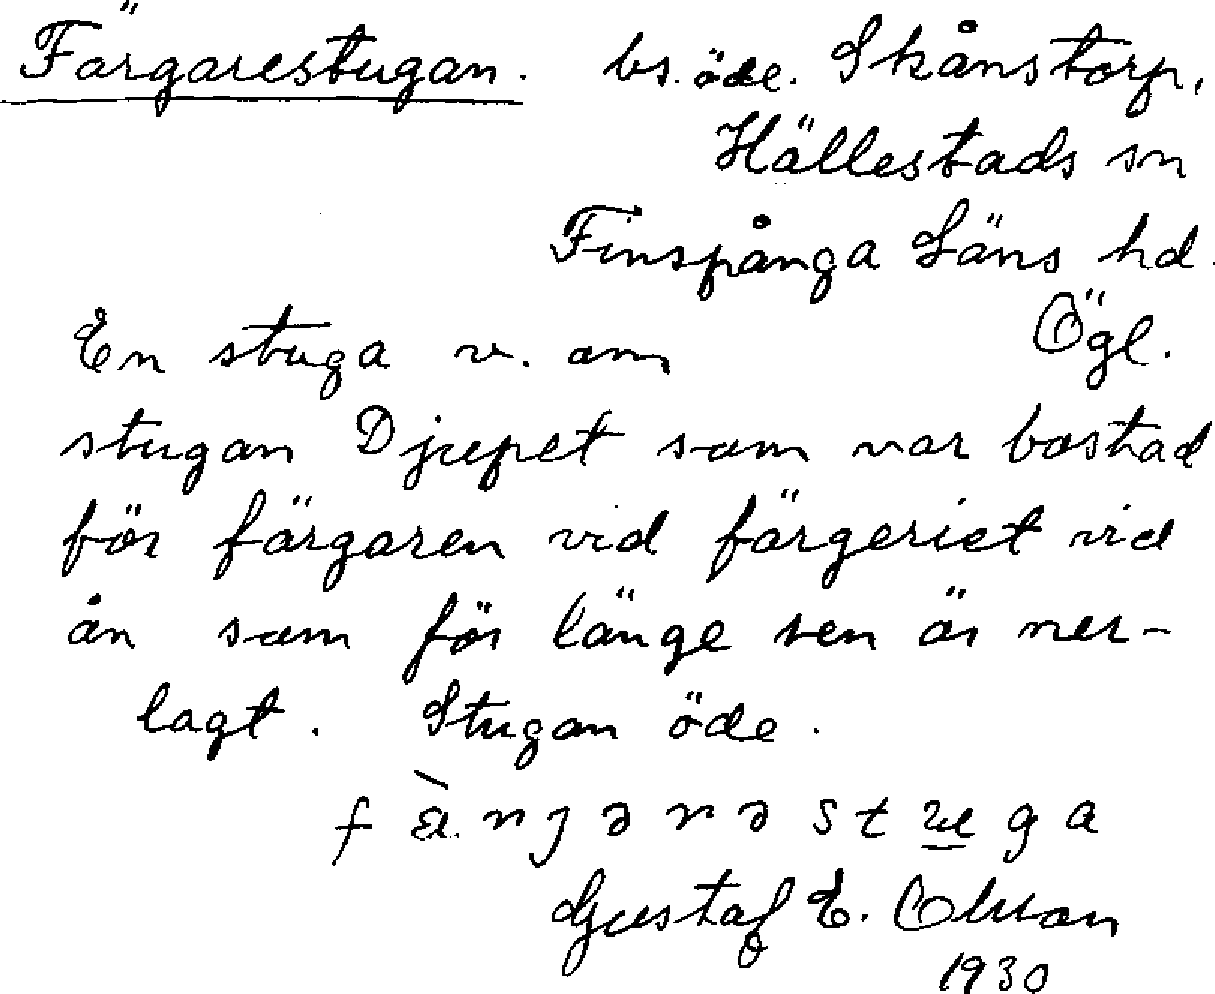 Färgarestugan. bs. öde. Skånstorp,
Hällestads sn
Finspånga Läns hd.
En stuga v. om Ögl.
stugan Djupet som var bostad
för färgaren vid färgeriet vid
ån som för länge sen är ner-
lagt. Stugan öde.
Gustaf E. Olsson
1930